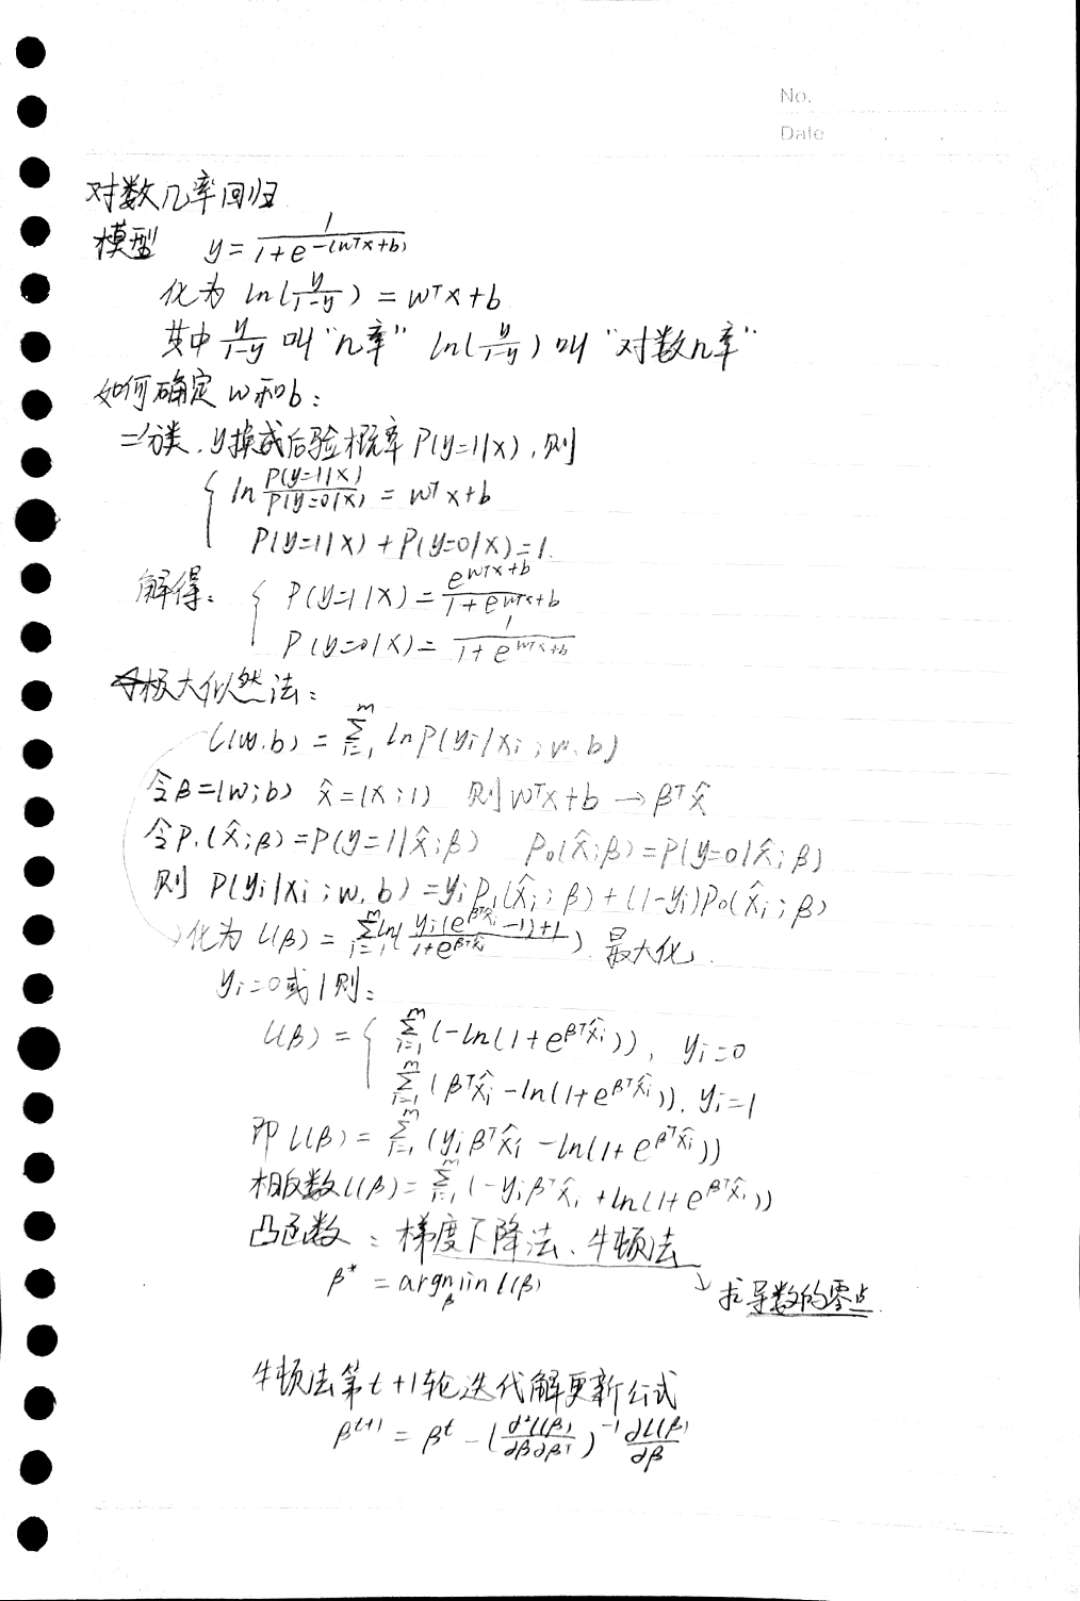 No.
Date
对数几率回归
模型 y = 1/(1+e^{-(wᵀx+b)})
化为 ln(y/(1-y)) = wᵀx+b
其中 y/(1-y) 叫“几率” ln(y/(1-y)) 叫“对数几率”
如何确定 w和b:
二分类, y换成后验概率 P(y=1|x), 则
{ ln P(y=1|x)/P(y=0|x) = wᵀx+b
P(y=1|x) + P(y=0|x) = 1.
解得: { P(y=1|x) = e^{wᵀx+b}/(1+e^{wᵀx+b})
P(y=0|x) = 1/(1+e^{wᵀx+b})
极大似然法:
L(w,b) = ∑_{i=1}^{m} ln P(yi|xi; w,b)
令β=(w;b) x̂=(x;1) 则 wᵀx+b → βᵀx̂
令P₁(x̂;β)=P(y=1|x̂;β) P₀(x̂;β)=P(y=0|x̂;β)
则 P(yi|xi;w,b) = yiP₁(x̂i;β)+(1-yi)P₀(x̂i;β)
化为 L(β) = ∑_{i=1}^{m} ln( (yi(e^{βᵀx̂i}-1)+1)/(1+e^{βᵀx̂i}) ) 最大化.
yi=0或1则:
L(β) = { ∑_{i=1}^{m} (-ln(1+e^{βᵀx̂i})), yi=0
∑_{i=1}^{m} (βᵀx̂i - ln(1+e^{βᵀx̂i})), yi=1
即 L(β) = ∑_{i=1}^{m} (yiβᵀx̂i - ln(1+e^{βᵀx̂i}))
相反数 L(β) = ∑_{i=1}^{m} (-yiβᵀx̂i + ln(1+e^{βᵀx̂i}))
凸函数: 梯度下降法、牛顿法
β* = argmin_β L(β)
求导数的零点.
牛顿法第t+1轮迭代解更新公式
β^{t+1} = β^t - (∂²L(β)/∂β∂βᵀ)^{-1} ∂L(β)/∂β